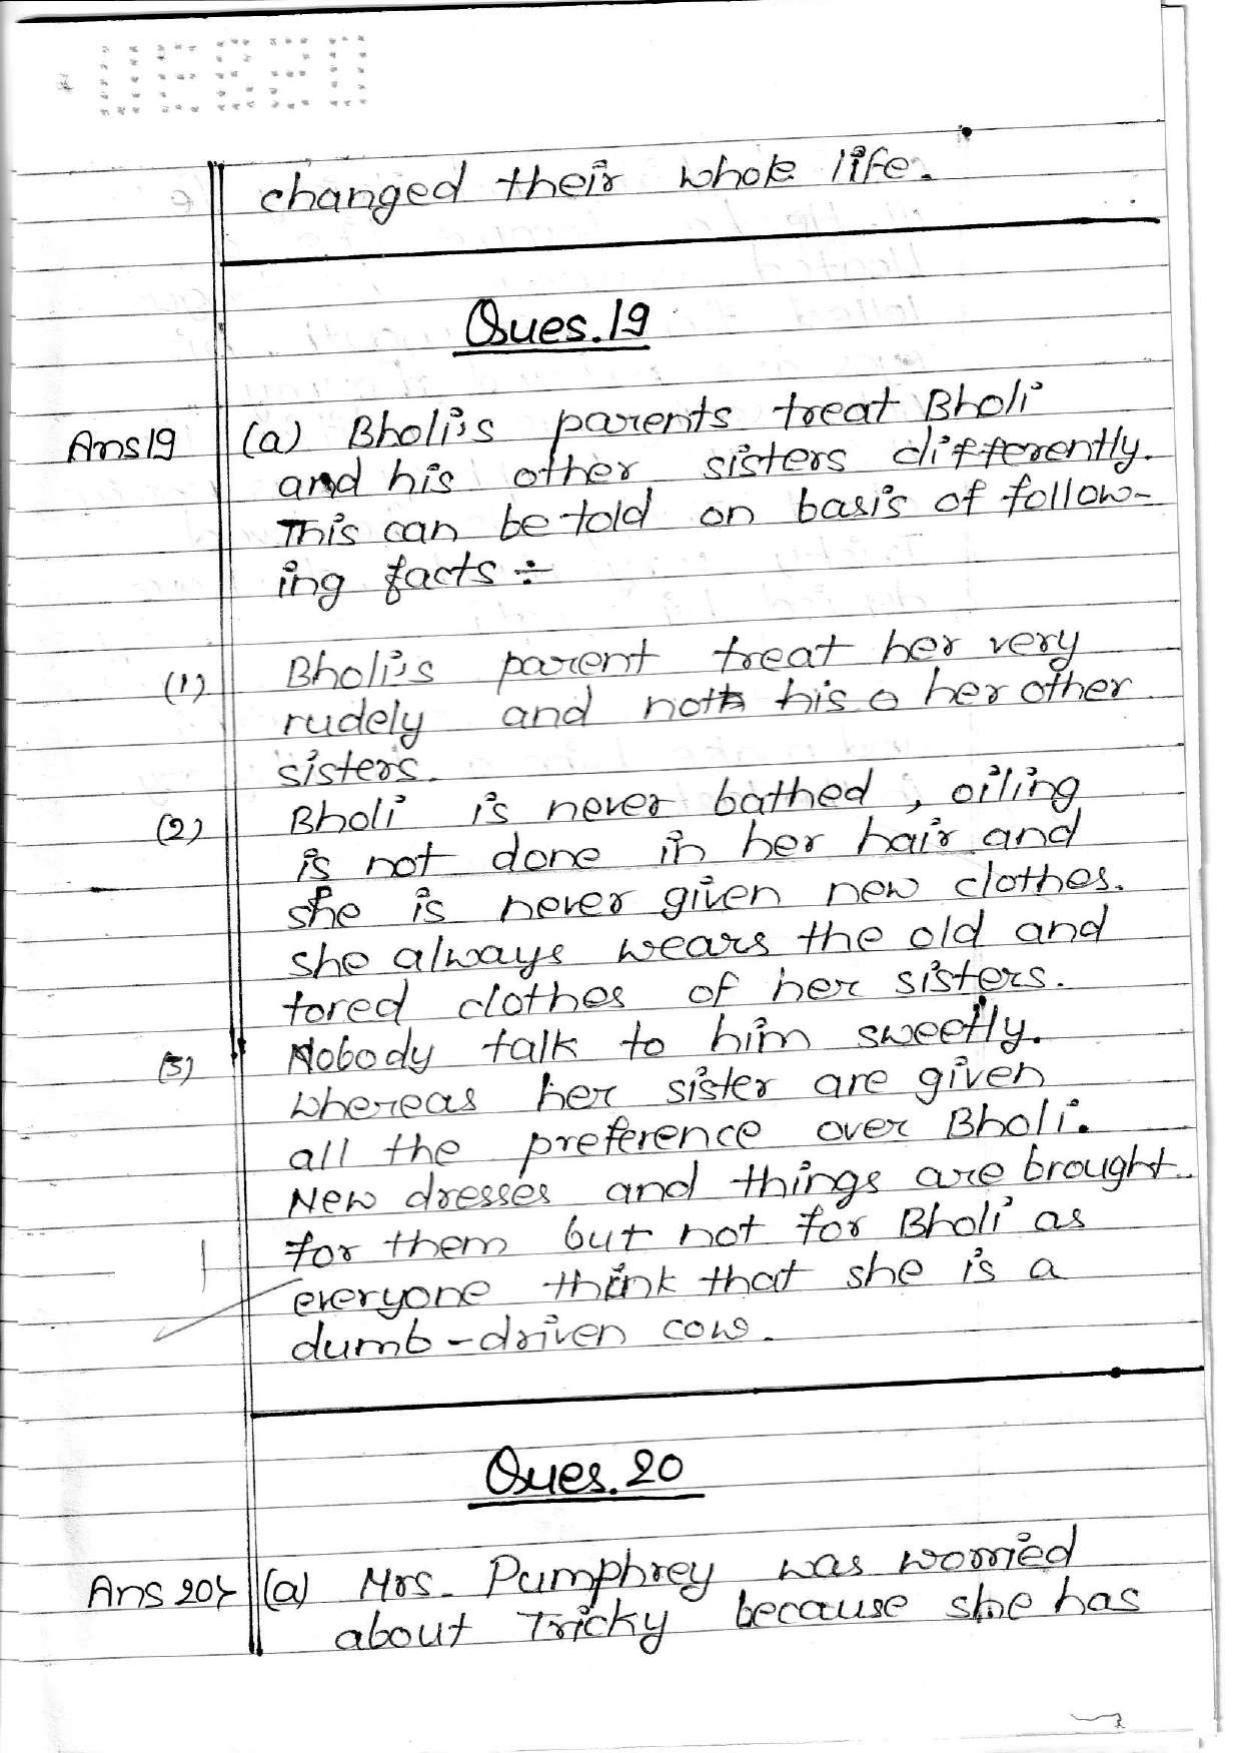 changed their whole life.
Ques.19
Ans19 (a) Bholi's parents treat Bholi
and his other sisters differently.
This can be told on basis of follow-
ing facts ÷
(1) Bholi's parent treat her very
rudely and not his her other
sisters.
(2) Bholi is never bathed, oiling
is not done in her hair and
she is never given new clothes.
she always wears the old and
tored clothes of her sisters.
(3) Nobody talk to him sweetly.
whereas her sister are given
all the preference over Bholi.
New dresses and things are brought
for them but not for Bholi as
everyone think that she is a
dumb-driven cow.
Ques.20
Ans 20 (a) Mrs. Pumphrey was worried
about Tricky because she has